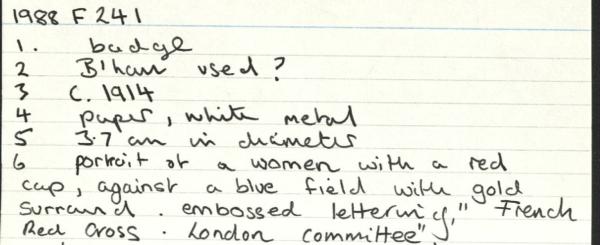 1988 F 241
1. badge
2 B'ham used?
3 C. 1914
4 paper, white metal
5 3.7 cm in diameter
6 portrait of a women with a red
cap, against a blue field with gold
surround. embossed lettering," French
Red Cross. London committee"